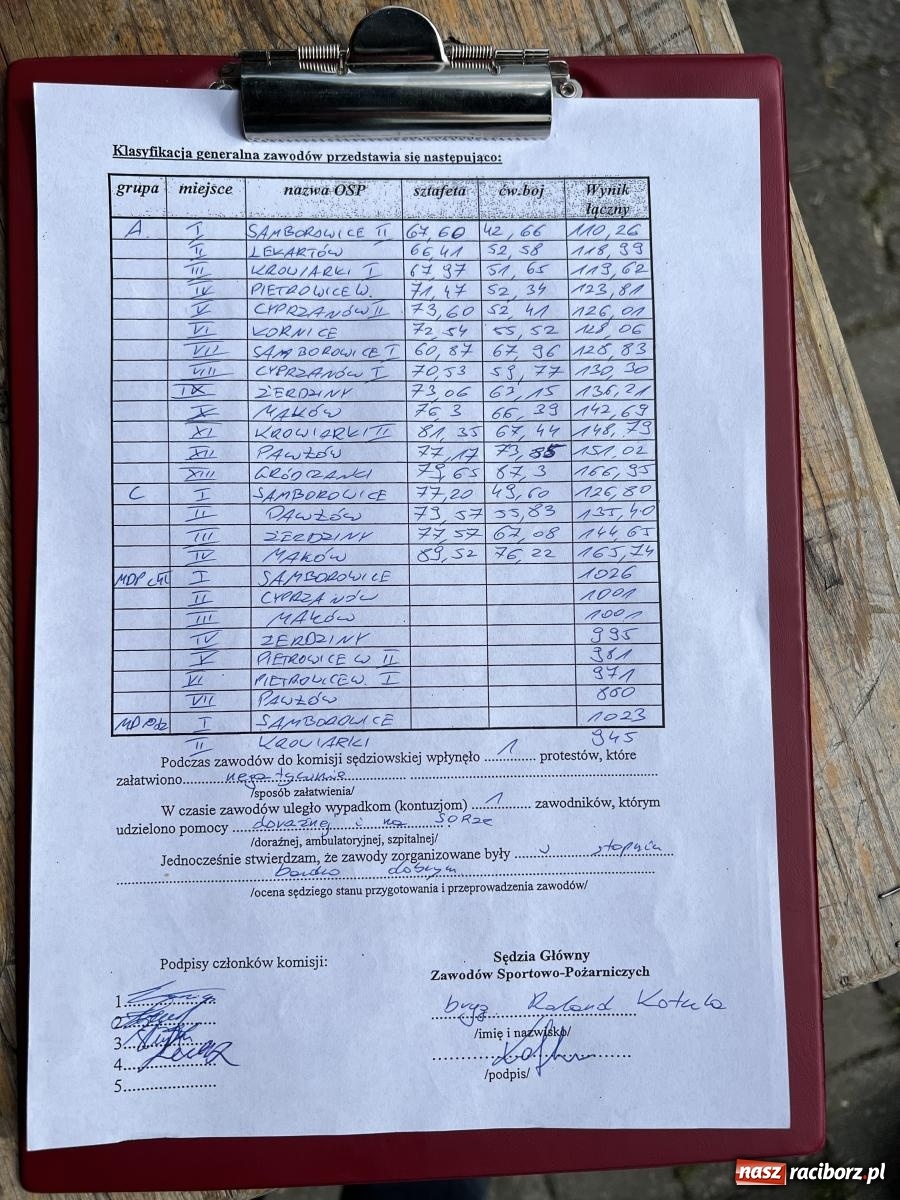 Klasyfikacja generalna zawodów przedstawia się następująco:
grupa miejsce nazwa OSP sztafeta ćw.boj Wynik łączny
A. I SAMBOROWICE II 67,60 42,66 110,26
II LEKARTÓW 66,41 52,58 118,99
III KROWIARKI I 67,97 51,65 119,62
IV PIETROWICE W. 71,47 52,34 123,81
V CYPRZANÓW II 73,60 52,41 126,01
VI KORNICE 72,54 55,52 128,06
VII SAMBOROWICE I 60,87 67,96 128,83
VIII CYPRZANÓW I 70,53 59,77 130,30
IX ŻERDZINY 73,06 63,15 136,21
X MAKÓW 76,3 66,39 142,69
XI KROWIARKI II 81,35 67,44 148,79
XII PAWŁÓW 77,17 73,85 151,02
XIII GRÓDCZANKI 79,65 87,3 166,95
C I SAMBOROWICE 77,20 49,60 126,80
II PAWŁÓW 79,57 55,83 135,40
III ŻERDZINY 77,57 67,08 144,65
IV MAKÓW 89,52 76,22 165,74
MDP chł I SAMBOROWICE 1026
II CYPRZANÓW 1001
III MAKÓW 1001
IV ŻERDZINY 995
V PIETROWICE W II 981
VI PIETROWICE W. I 971
VII PAWŁÓW 860
MDP dz I SAMBOROWICE 1023
II KROWIARKI 945
Podczas zawodów do komisji sędziowskiej wpłynęło 1 protestów, które
załatwiono negatywnie
/sposób załatwienia/
W czasie zawodów uległo wypadkom (kontuzjom) 1 zawodników, którym
udzielono pomocy doraźnej i na SORze
/doraźnej, ambulatoryjnej, szpitalnej/
Jednocześnie stwierdzam, że zawody zorganizowane były w stopniu
bardzo dobrym
/ocena sędziego stanu przygotowania i przeprowadzenia zawodów/
Podpisy członków komisji:
Sędzia Główny
Zawodów Sportowo-Pożarniczych
1.
2
3.
4.
5.
bryg Roland Kotula
/imię i nazwisko/
/podpis/
nasz raciborz.pl